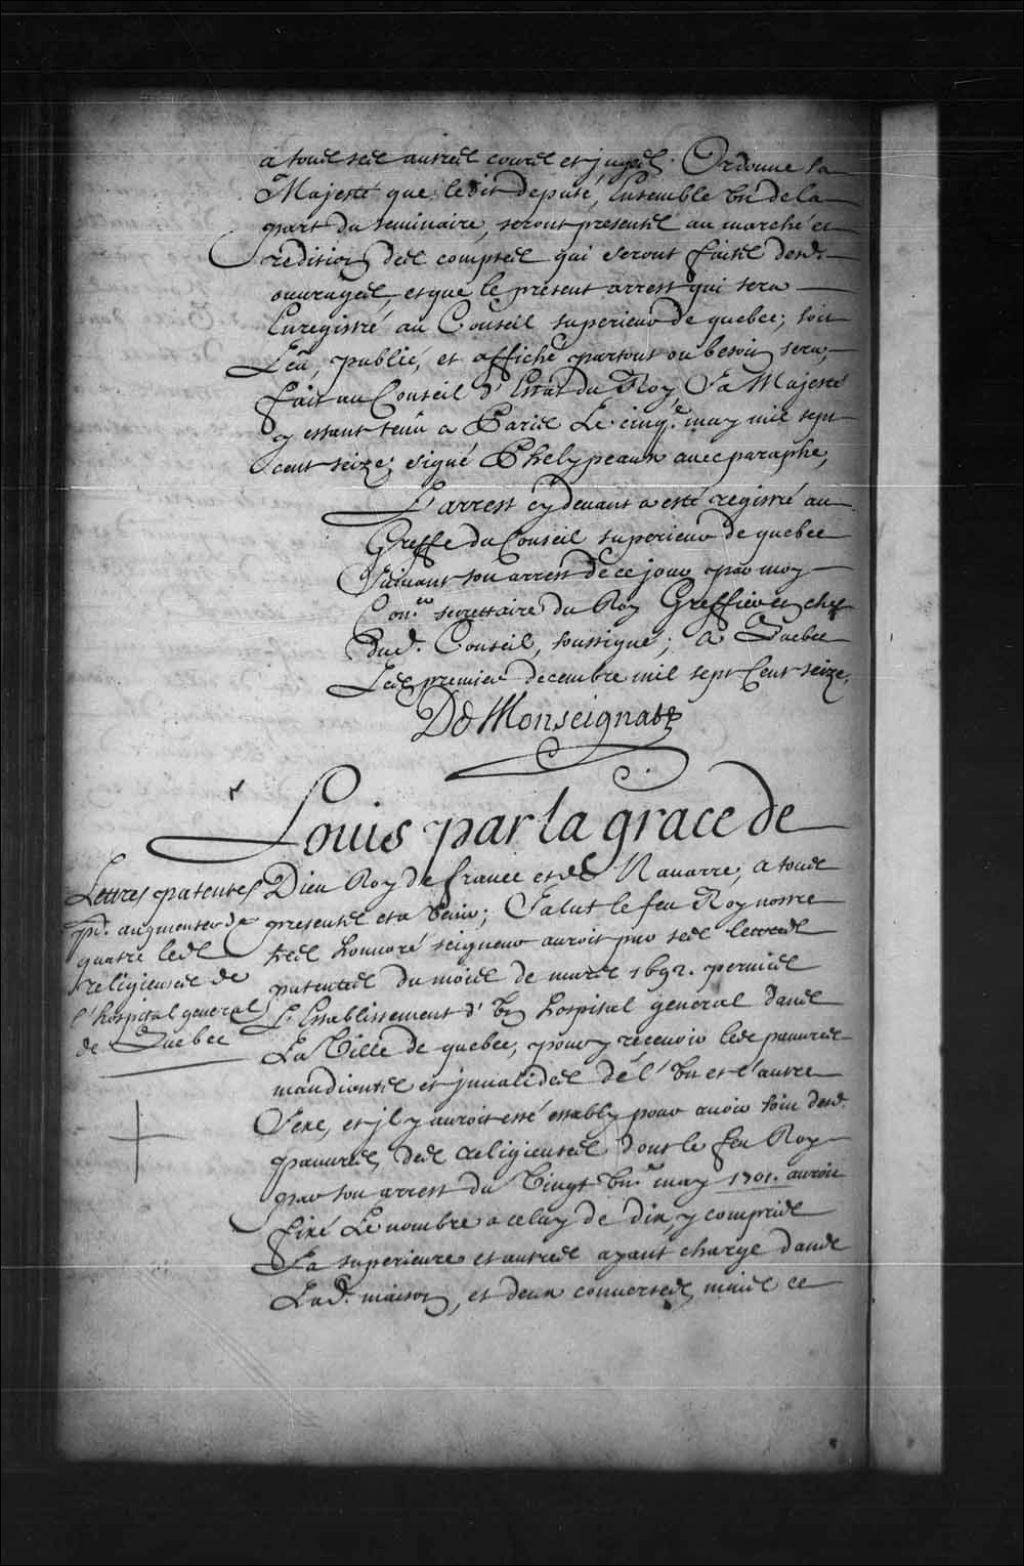 a toutes ses autres cours et juges. Ordonne sa
Majesté que ledit deputé, Ensemble un de la
part du seminaire, seront presents au marché et
redition des comptes qui seront faits desd.
ouvrages, et que le present arrest qui sera
Enregistré au Conseil superieur de quebec, soit
Leu, publié, et affiché partout ou besoin sera,
fait au Conseil d'Estat du Roy, Sa Majesté
y estant tenû a Paris Le cinq.e may mil sept
cent seize; signé Phelypeaux avec paraphe,
L'arrest cy devant a esté registré au
Greffe du Conseil superieur de quebec
Suivant son arrest de ce jour par moy
Con.er secrettaire du Roy Greffier en chef
dud. Conseil, soussigné; a Quebec
Le premier decembre mil sept Cent seize.
De Monseignat
Louis par la grace de
Lettres patentes
pr. augmenter de
quatre les
religieuses de
l'hospital general
de Quebec
Dieu Roy de france et de Navarre; a tous
presents et a venir; Salut le feu Roy nostre
tres honnoré seigneur auroit par ses lettres
patentes du mois de mars 1692. permis
L'Establissement d'un hospital general dans
La Ville de quebec, pour y recevoir les pauvres
mandients et jnvalides de l'un et l'autre
Sexe, et jl y auroit esté estably pour avoir soin desd.
pauvres, des religieuses dont le feu Roy
par son arrest du vingt un.e may 1701. auroit
fixé Le nombre a celuy de dix, y compris
La superieure et autres ayant charge dans
Lad. maison, et deux converses, mais ce